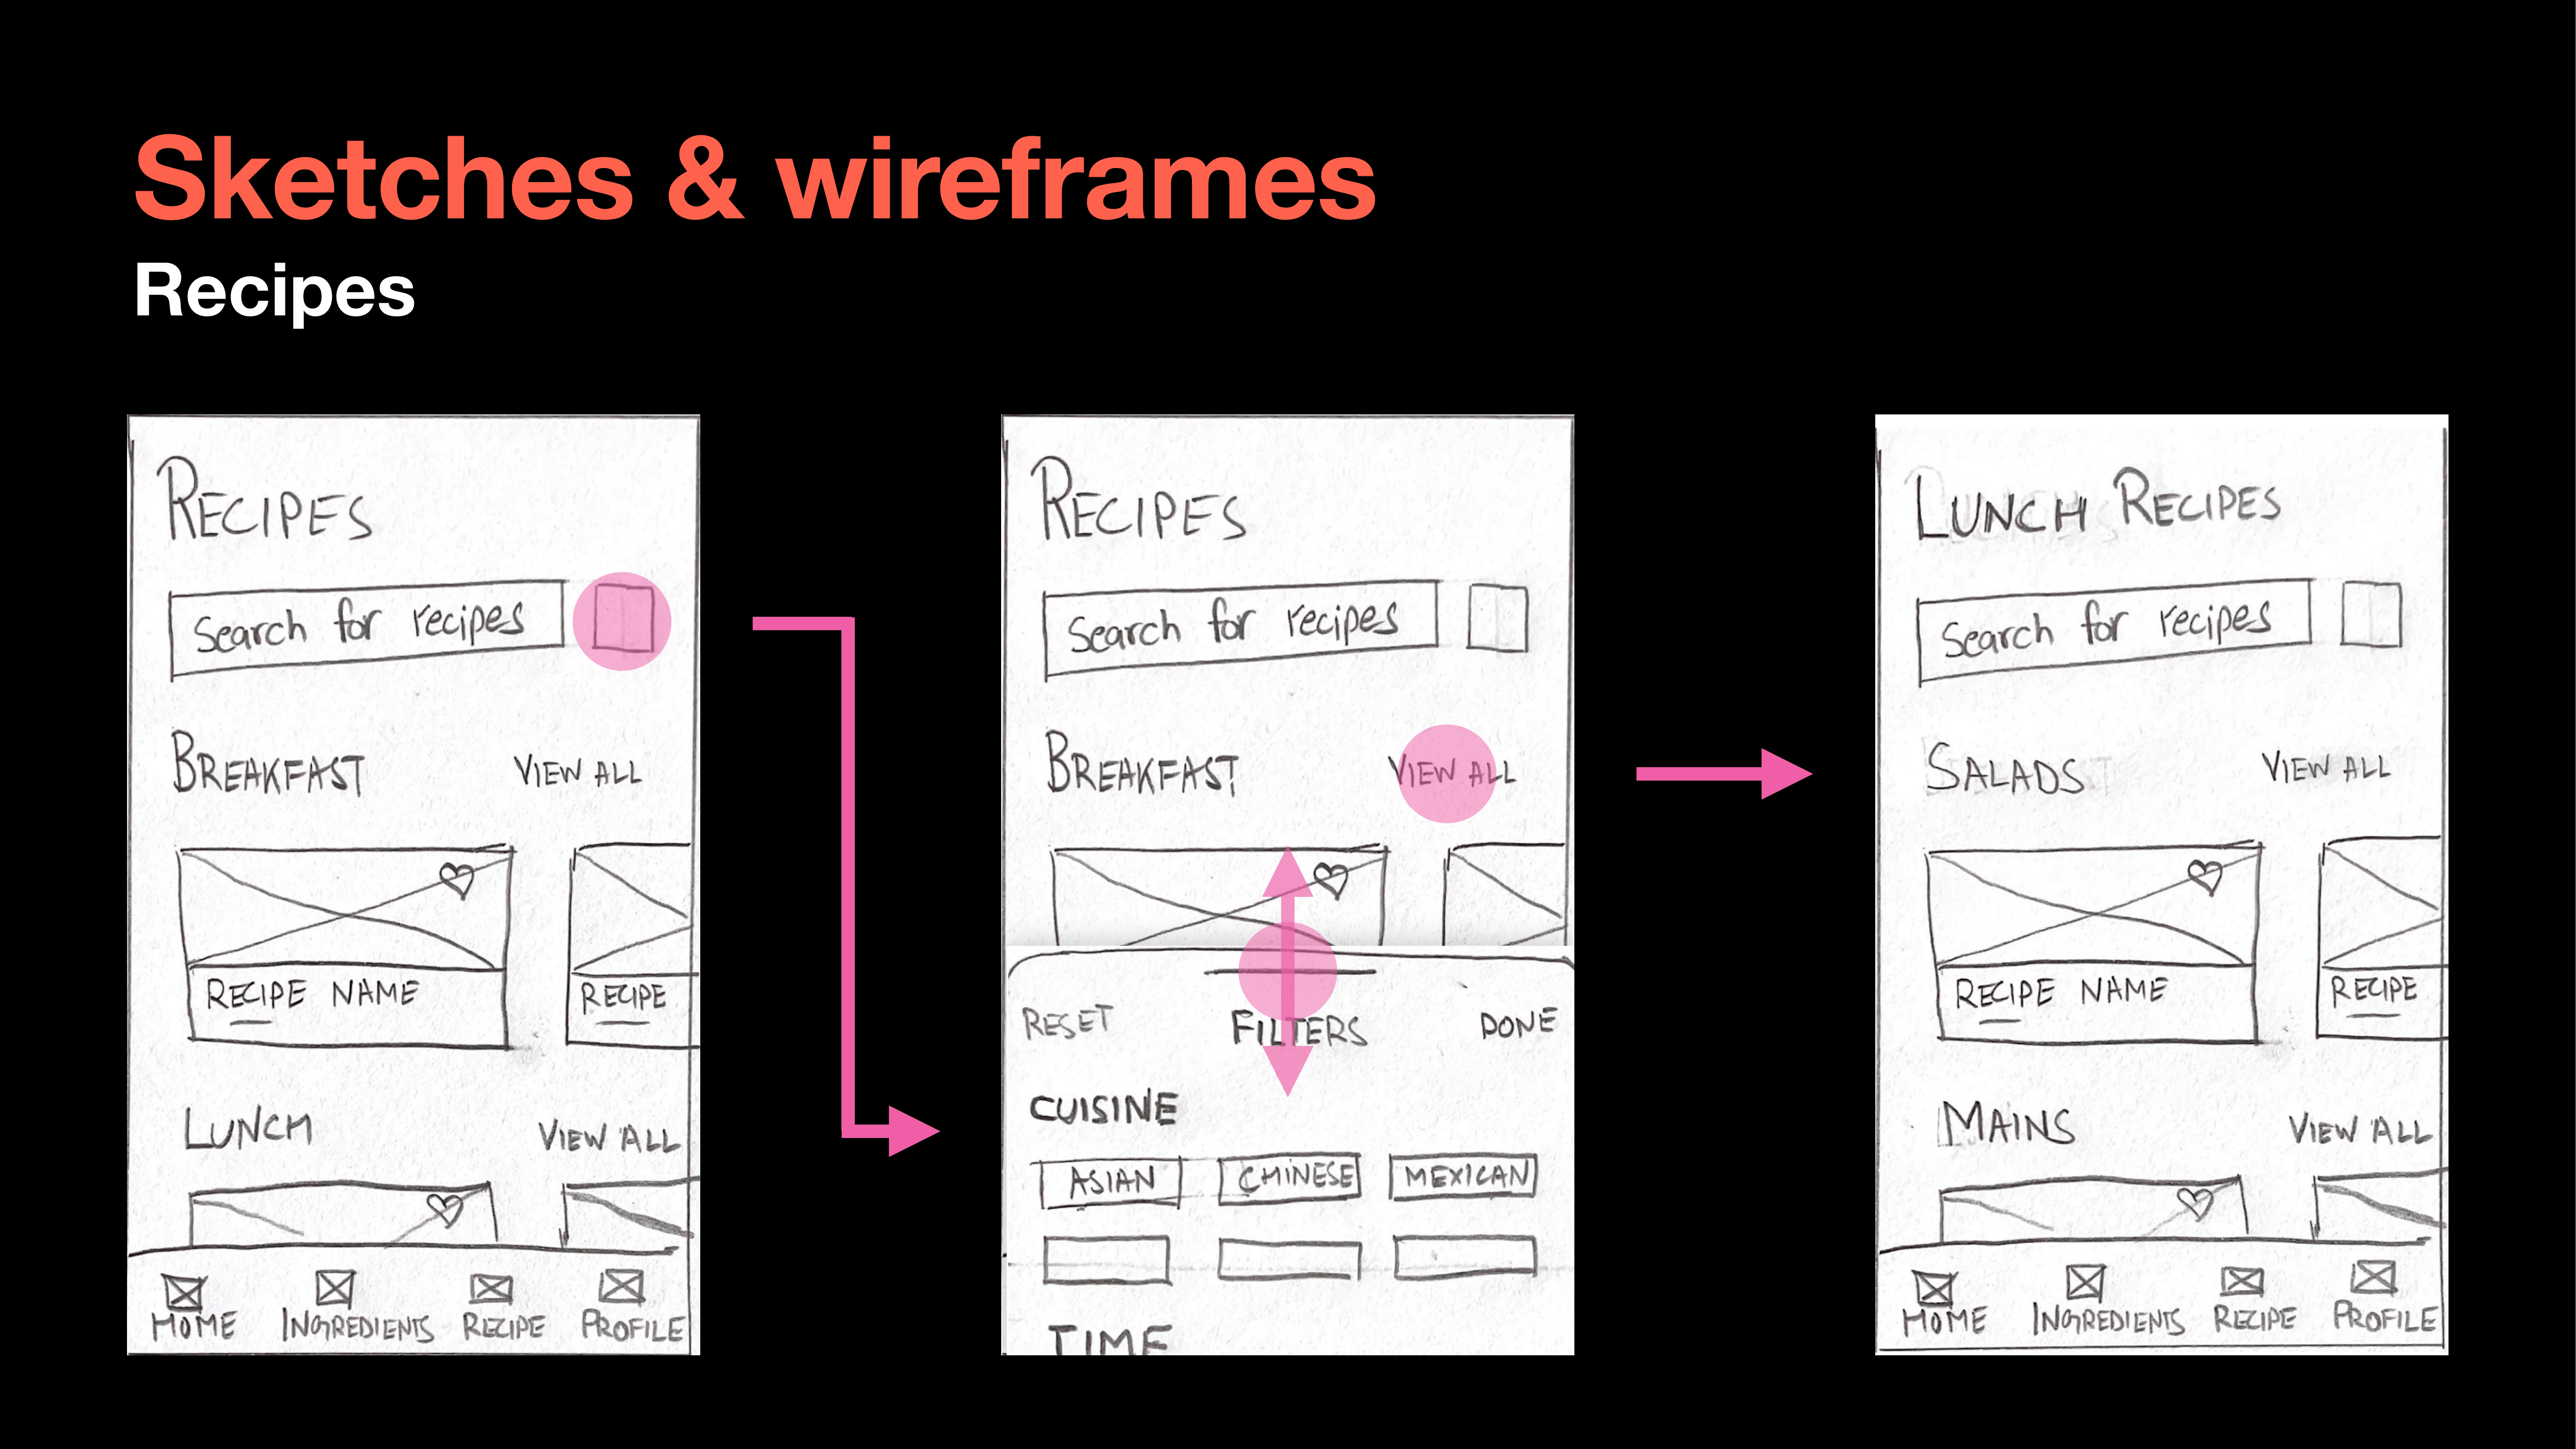 Sketches & wireframes
Recipes
RECIPES
Search for recipes
BREAKFAST VIEW ALL
RECIPE NAME RECIPE
LUNCH VIEW ALL
HOME INGREDIENTS RECIPE PROFILE
RECIPES
Search for recipes
BREAKFAST VIEW ALL
RESET FILTERS DONE
CUISINE
ASIAN CHINESE MEXICAN
TIME
LUNCH RECIPES
Search for recipes
SALADS VIEW ALL
RECIPE NAME RECIPE
MAINS VIEW ALL
HOME INGREDIENTS RECIPE PROFILE